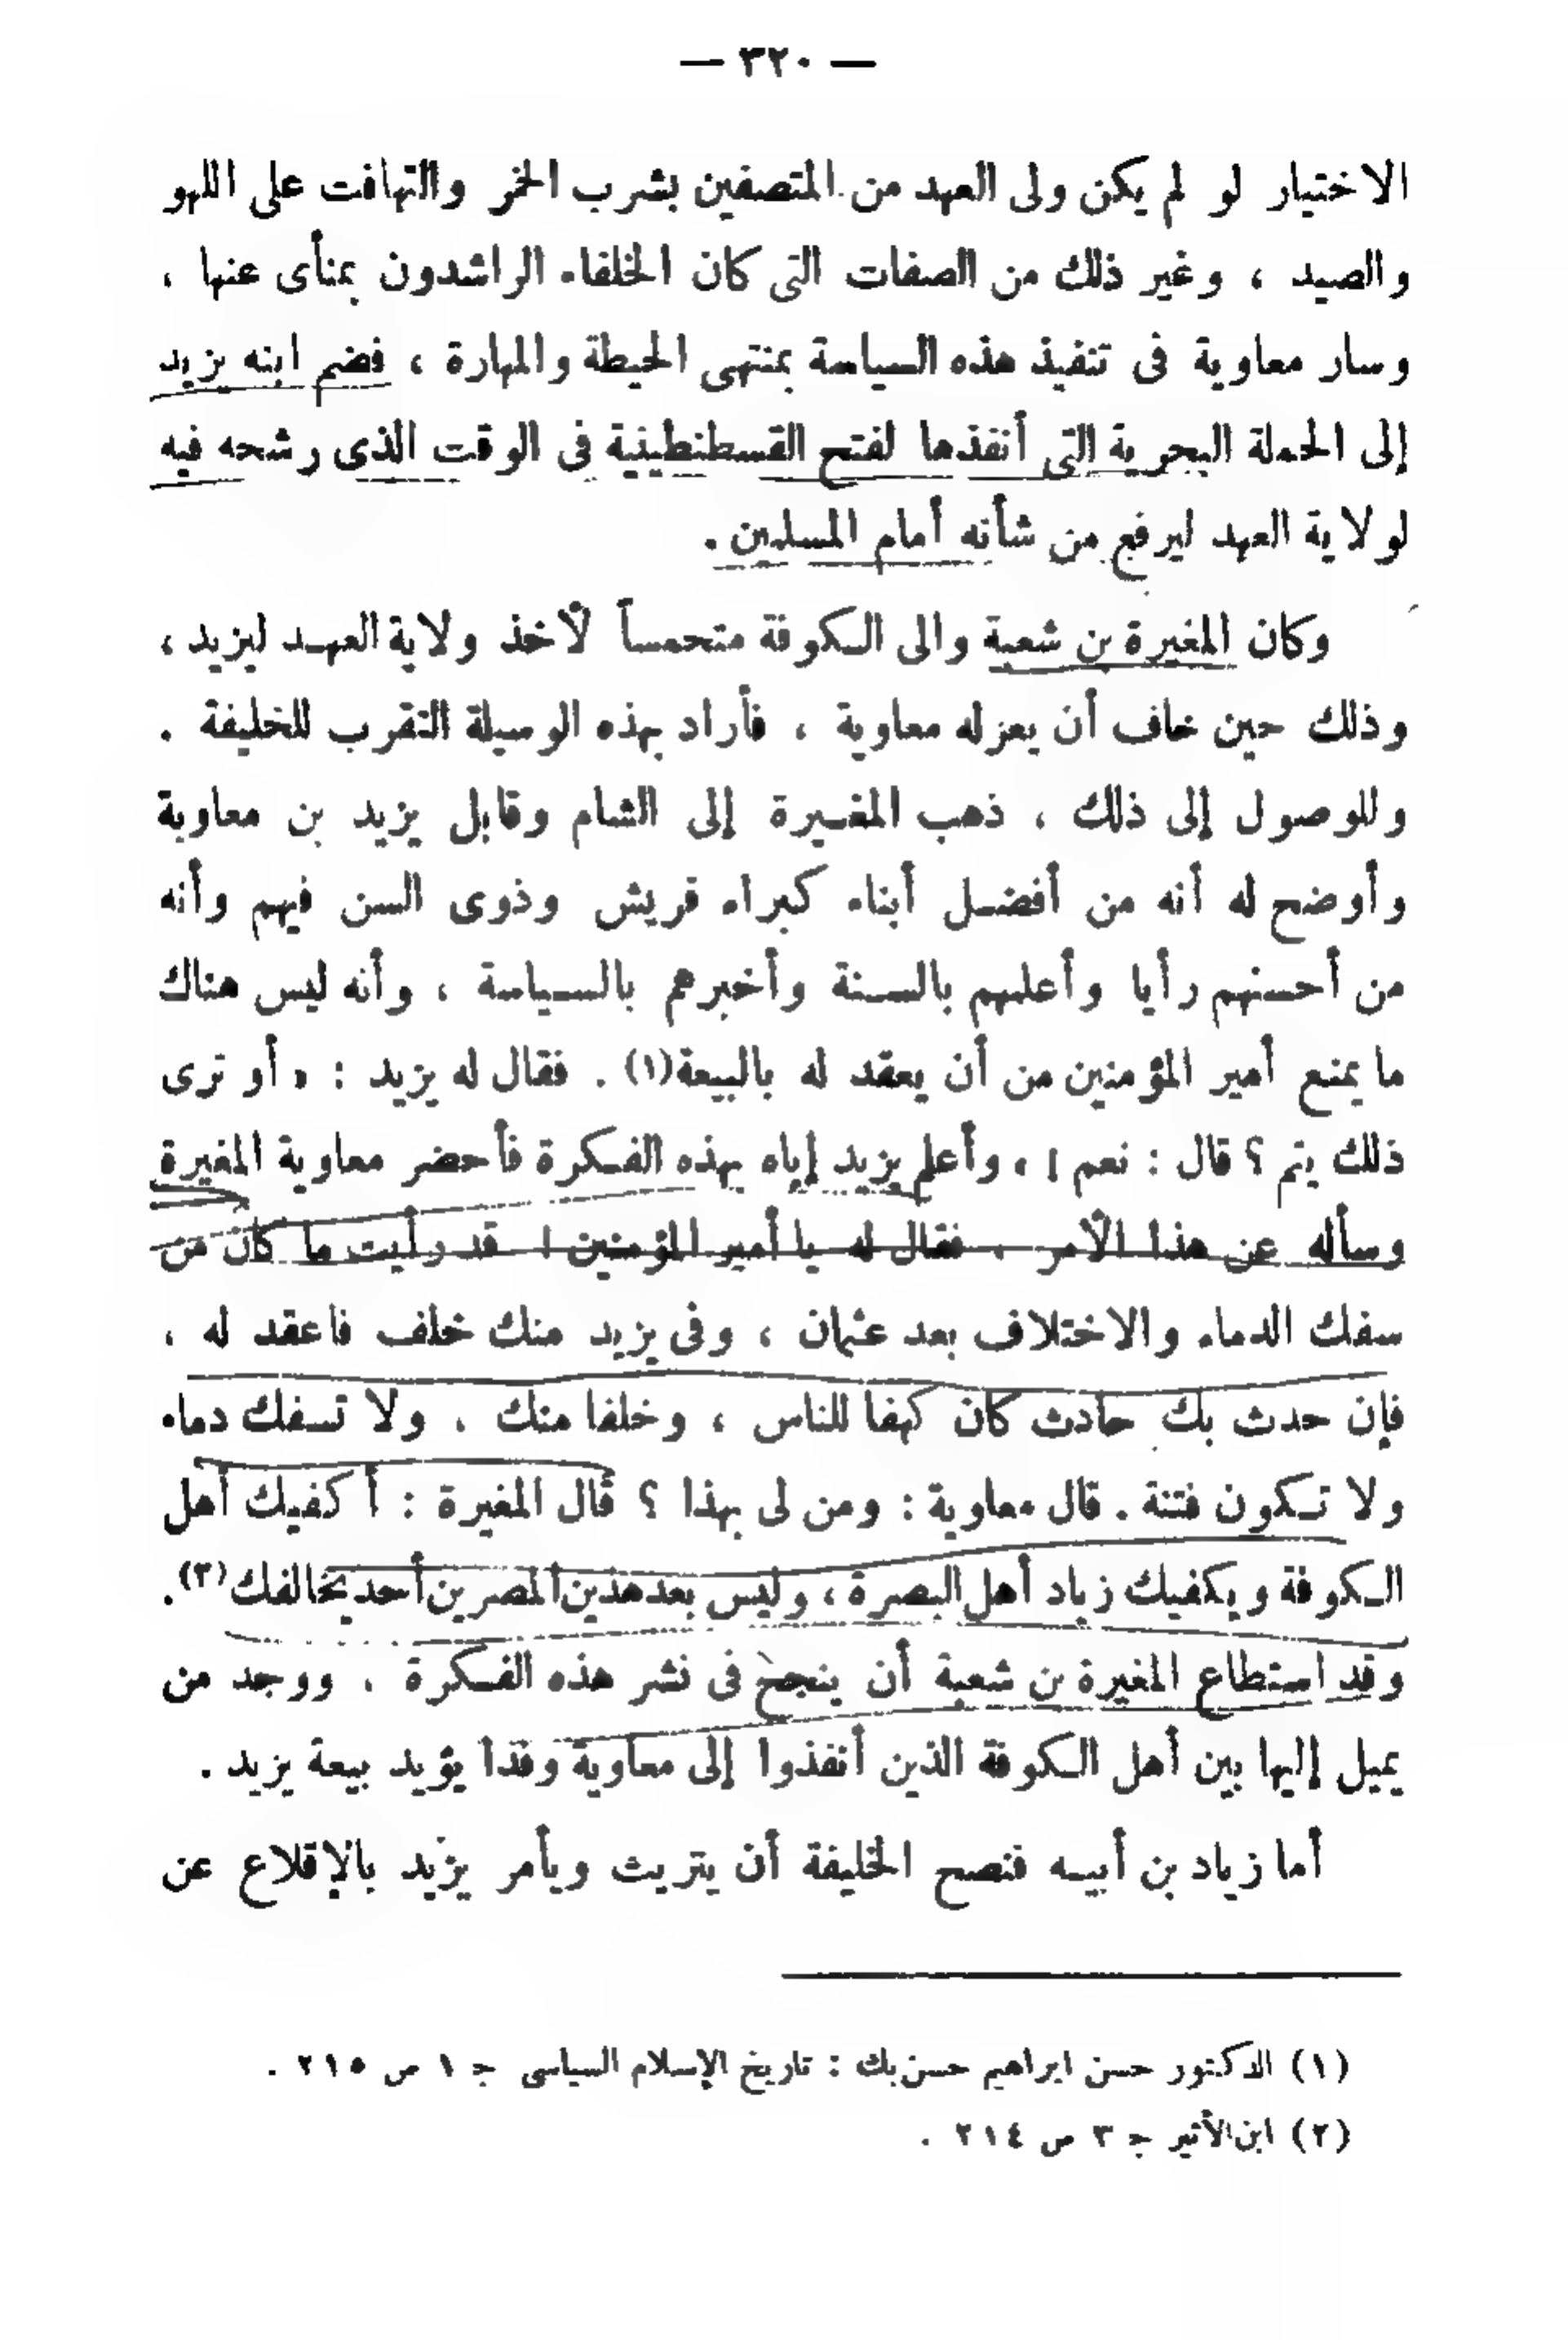 — ٣٢٠ —
الاختيار لو لم يكن ولى العهد من المتصفين بشرب الخمر والتهافت على اللهو
والصيد ، وغير ذلك من الصفات التى كان الخلفاء الراشدون بمنأى عنها ،
وسار معاوية فى تنفيذ هذه السياسة بمنتهى الحيطة والمهارة ، فضم ابنه يزيد
إلى الحملة البحرية التى أنفذها لفتح القسطنطينية فى الوقت الذى رشحه فيه
لولاية العهد ليرفع من شأنه أمام المسلمين .
وكان المغيرة بن شعبة والى الكوفة متحمساً لأخذ ولاية العهد ليزيد ،
وذلك حين خاف أن يعزله معاوية ، فأراد بهذه الوسيلة التقرب للخليفة .
وللوصول إلى ذلك ، ذهب المغيرة إلى الشام وقابل يزيد بن معاوية
وأوضح له أنه من أفضل أبناء كبراء قريش وذوى السن فيهم وأنه
من أحسنهم رأيا وأعلمهم بالسنة وأخبرهم بالسياسة ، وأنه ليس هناك
ما يمنع أمير المؤمنين من أن يعقد له بالبيعة(١) . فقال له يزيد : « أو ترى
ذلك يتم ؟ قال : نعم ! » وأعلم يزيد إياه بهذه الفكرة فأحضر معاوية المغيرة
وسأله عن هذا الأمر ، فقال له يا أمير المؤمنين ! قد رأيت ما كان من
سفك الدماء والاختلاف بعد عثمان ، وفى يزيد منك خلف فاعقد له ،
فإن حدث بك حادث كان كهفا للناس ، وخلفا منك ، ولا تسفك دماء
ولا تكون فتنة . قال معاوية : ومن لى بهذا ؟ قال المغيرة : أكفيك أهل
الكوفة ويكفيك زياد أهل البصرة ، وليس بعد هذين المصرين أحد يخالفك(٢).
وقد استطاع المغيرة بن شعبة أن ينجح فى نشر هذه الفكرة ، ووجد من
يميل إليها بين أهل الكوفة الذين أنفذوا إلى معاوية وفدا يؤيد بيعة يزيد .
أما زياد بن أبيه فنصح الخليفة أن يتريث ويأمر يزيد بالإقلاع عن
(١) الدكتور حسن ابراهيم حسن بك : تاريخ الإسلام السياسى ج ١ ص ٢١٥ .
(٢) ابن الأثير ج ٣ ص ٢١٤ .